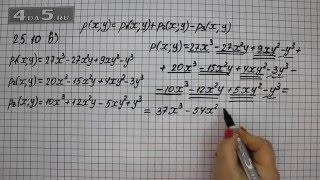 ADSR.RU
p(x;y) = p₁(x;y) + p₂(x;y) - p₃(x;y)
25.10 в)
p₁(x;y) = 27x³ - 27x²y + 9xy² - y³
p₂(x;y) = 20x³ - 15x²y + 4xy² - 3y³
p₃(x;y) = 10x³ + 12x²y - 5xy² + y³
p(x;y) = 27x³ - 27x²y + 9xy² - y³ +
+ 20x³ - 15x²y + 4xy² - 3y³ -
- 10x³ - 12x²y + 5xy² - y³ =
= 37x³ - 54x²